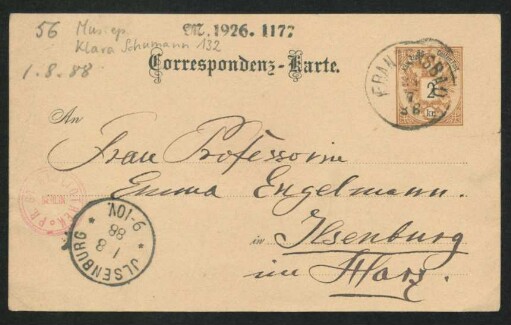 56
Mus. ep.
Klara Schumann 132
1.8.88
M. 1926. 1177
Correspondenz-Karte.
FRANZENSBAD
7
88
2
kr.
An
Frau Professorin
Emma Engelmann.
in Ilsenburg
im Harz.
JLSENBURG
1 8
88
9-10N